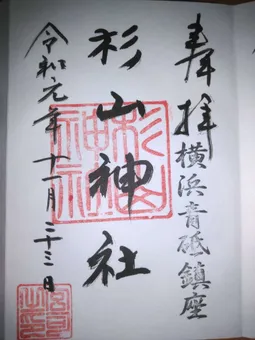 奉拝
横浜青砥鎮座
杉山神社
令和元年十一月二十三日
杉山神社